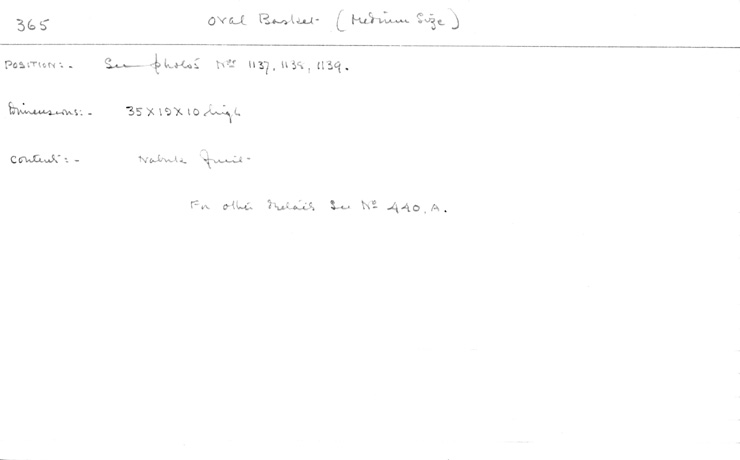 365 Oval Basket (Medium Size)
POSITION:- See photos Nos 1137, 1138, 1139.
Dimensions:- 35 X 19 X 10 high
Contents:- Nabuk fruit
For other Details See No 440, A.